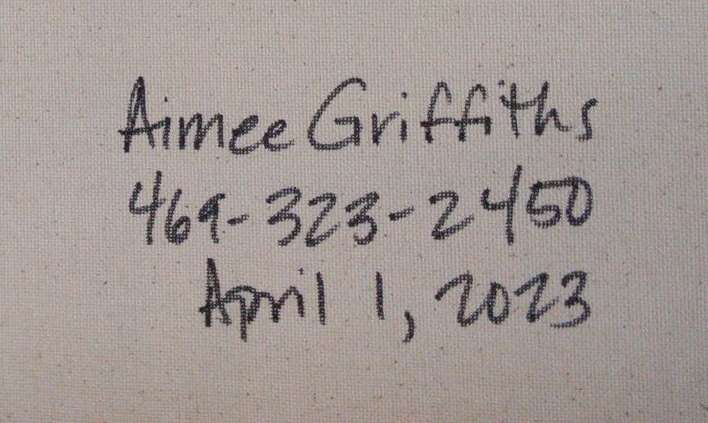 Aimee Griffiths
469-323-2450
April 1, 2023